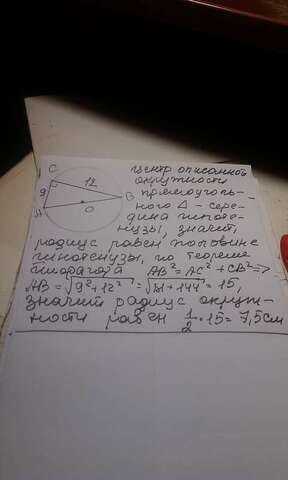 C
центр описанной
окружности
12
9
прямоуголь-
B
ного Δ - сере-
O
A
дина гипоте-
нузы, значит,
радиус равен половине
гипотенузы, по теореме
пифагора AB²=AC²+CB²=>
AB=√9²+12²=√81+144=15,
значит радиус окруж-
ности равен 1/2·15=7,5см